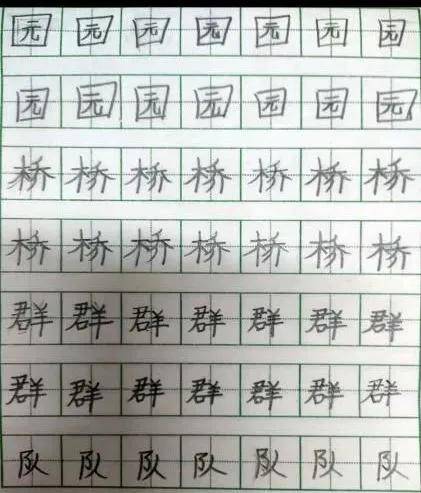 园园园园园园园
园园园园园园园
桥桥桥桥桥桥桥
桥桥桥桥桥桥桥
群群群群群群群
群群群群群群群
队队队队队队队